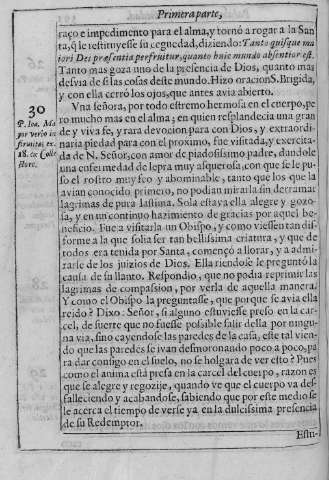 Primera parte,
raço e impedimento para el alma, y tornó a rogar a la San
ta, q̃ le restituyesse su ceguedad, diziendo: Tanto quisque ma
iori Dei præsentia perfruitur, quanto huic mundo absentior est.
Tanto mas goza uno de la presencia de Dios, quanto mas
desvia de si las cosas deste mundo. Hizo oracion S. Brigida,
y con ella cerrò los ojos, que antes avia abierto.
30
P. Ioa. Ma
por verbo in
firmitas ex.
18. ex Colle
ctore.
Vna señora, por todo estremo hermosa en el cuerpo, pe
ro mucho mas en el alma; en quien resplandecia una gran
de y viva fe, y rara devocion para con Dios, y extraordi
naria piedad para con el proximo, fue visitada, y exercita
da de N. Señor, con amor de piadosissimo padre, dandole
una enfermedad de lepra muy alquerosa, con que se le pu
so el rostro muy feo y abominable, tanto que los que la
avian conocido primero, no podian mirarla sin derramar
lagrimas de pura lastima. Sola estava ella alegre y gozo-
sa, y en un continuo hazimiento de gracias por aquel be-
neficio. Fue a visitarla un Obispo, y como viessen tan dis
forme a la que solia ser tan bellissima criatura, y que de
todos era tenida por Santa, començò a llorar, y a admi-
rarse de los juizios de Dios. Ella riendose le preguntò la
causa de su llanto. Respondio, que no podia reprimir las
lagrimas de compassion, por verla de aquella manera.
Y como el Obispo la preguntasse, que porque se avia ella
reido? Dixo: Señor, si alguno estuviesse preso en la car-
cel, de suerte que no fuesse possible salir della por ningu-
na via, sino cayendose las paredes de la casa, este tal vien-
do que las paredes se ivan desmoronando poco a poco, pa
ra dar consigo en el suelo, no se holgara de ver esto? Pues
como el anima està presa en la carcel del cuerpo, razon es
que se alegre y regozije, quando ve que el cuerpo va des-
falleciendo y acabandose, sabiendo que por este medio se
le acerca el tiempo de verse ya en la dulcissima presencia
de su Redemptor.
Estu-